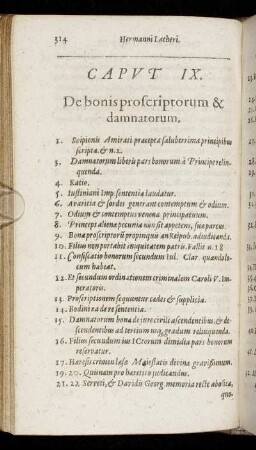 314 Hermanni Latheri.
CAPVT IX.
De bonis proscriptorum &
damnatorum.
1. Scipionis Amirati præcepta saluberrima principibus
scripta. & n. 2.
3. Damnatorum liberis pars bonorum à Principe relin-
quenda.
4. Ratio.
5. Iustiniani Imp. sententia laudatur.
6. Avaritia & sordes generant contemptum & odium.
7. Odium & contemptus venena principatuum.
8. Princeps alienæ pecuniæ non sit appetens, suæ parcus.
9. Bona proscriptorū propinquis an Reipub. addicenda.
10. Filius non portabit iniquitatem patris. Fallit n. 18
11. Confiscatio bonorum secundum Iul. Clar. quando lo-
cum habeat.
12. Et secundum ordinationem criminalem Caroli V. Im-
peratoris.
13. Proscriptionem sequuntur cædes & supplicia.
14. Bodini ea de re sententia.
15. Damnatorum bona de iure civili ascendentibus, & de-
scendentibus ad tertium usq; gradum relinquenda.
16. Filiis secundum ius ICtorum dimidia pars bonorum
reservatur.
17. Hæresis crimen læsæ Majestatis divinæ gravissimum.
19. 20. Quinam pro hæretico judicandus.
21. 22 Serveti, & Davidis Georg. memoria rectè abolita,
quo-